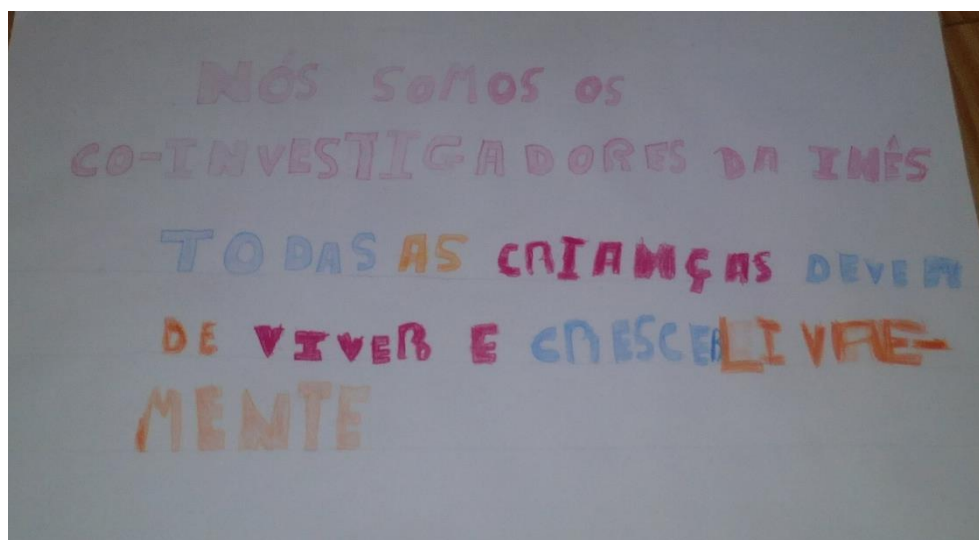 NÓS SOMOS OS
CO-INVESTIGADORES DA INÊS
TODAS AS CRIANÇAS DEVEM
DE VIVER E CRESCER LIVRE-
MENTE